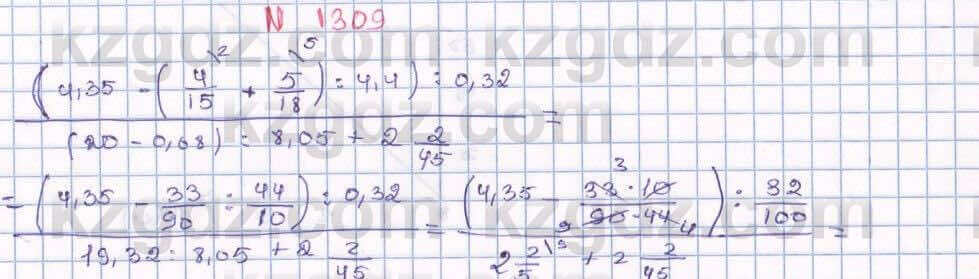 N 1309
(4,35 - (4/15 \2 + 5/18 \5) : 4,4) : 0,32
(20 - 0,68) : 8,05 + 2 2/45 =
= (4,35 - 33/90 : 44/10) : 0,32 / 19,32 : 8,05 + 2 2/45 = (4,35 - 33 · 10 / 90 · 44) : 32/100 / 2 2/5 \9 + 2 2/45 =
kzgdz.com kzgdz.com
kzgdz.com
kzgdz.com kzgdz.com